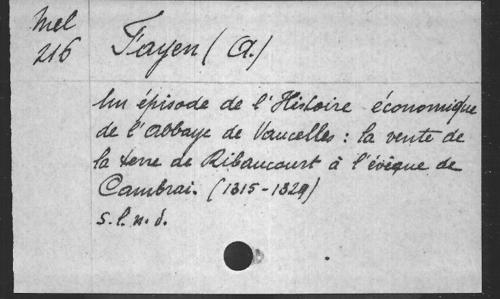 Mel
216
Fayen (A.)
Un épisode de l'Histoire économique
de l'Abbaye de Vaucelles : la vente de
la terre de Ribaucourt à l'évêque de
Cambrai. (1315-1329)
s.l.n.d.